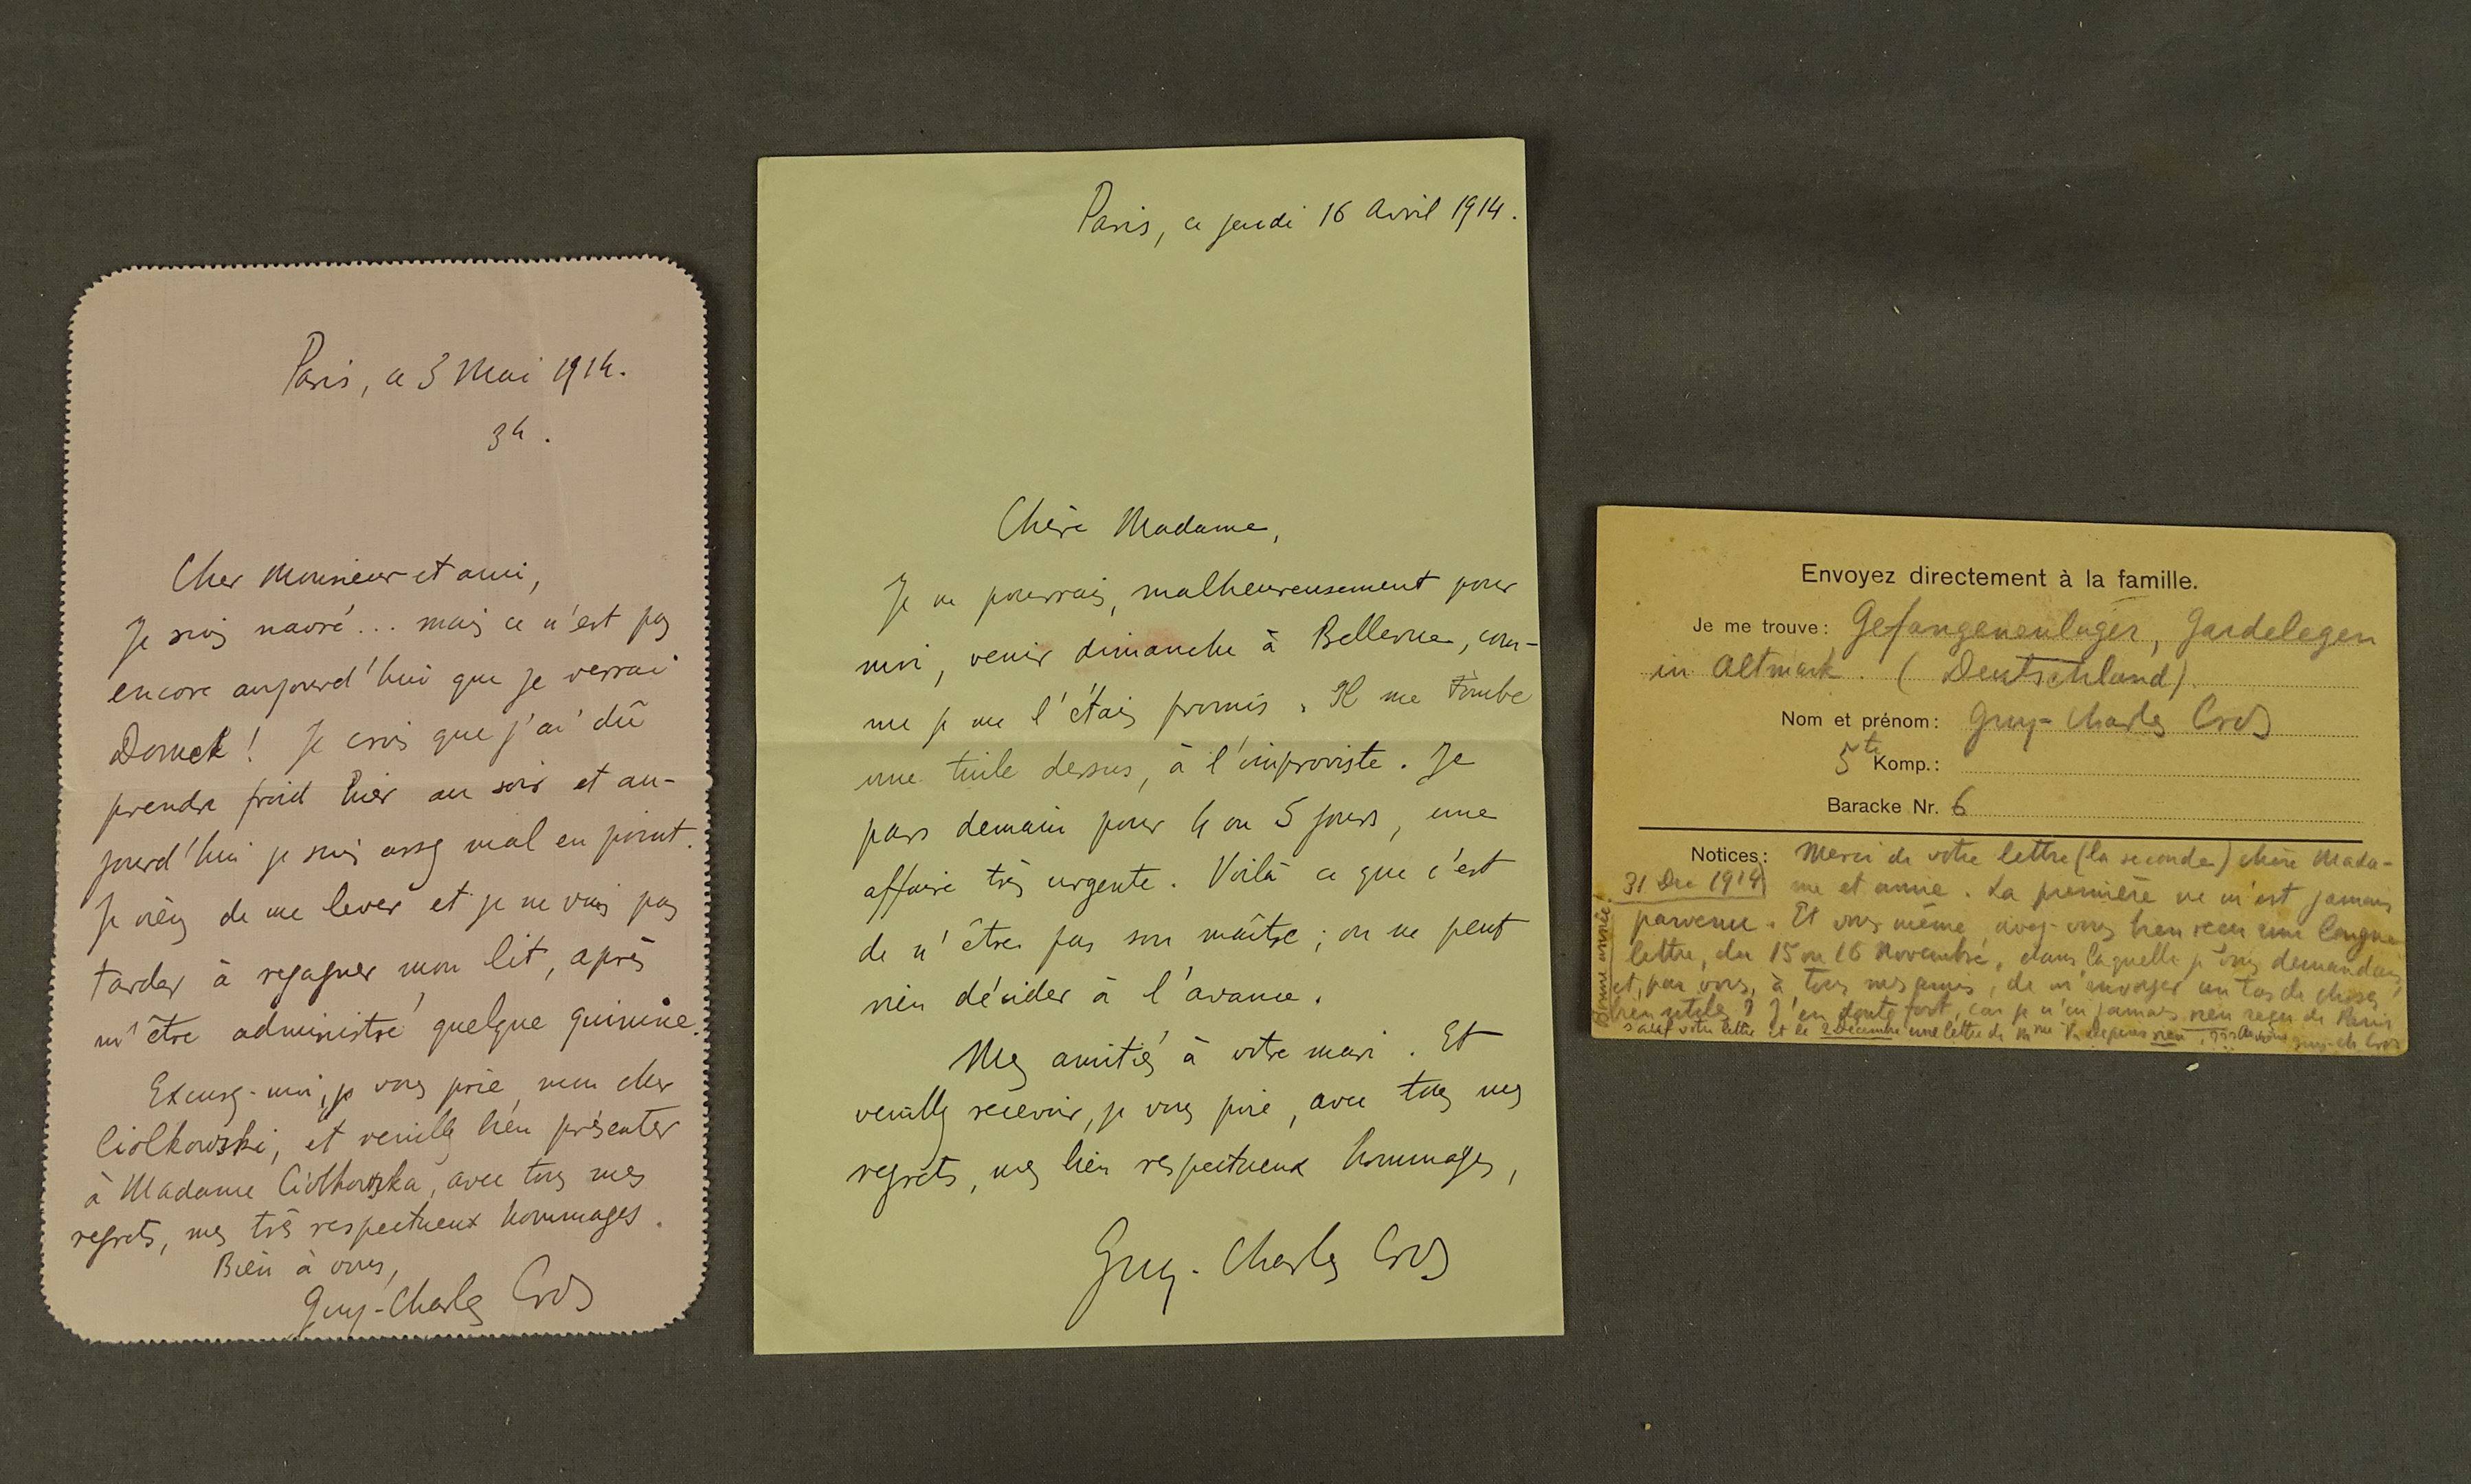 Paris, ce 3 Mai 1914.
3h.
Cher Monsieur et ami,
Je suis navré... mais ce n'est pas
encore aujourd'hui que je verrai
Domek! Je crois que j'ai dû
prendre froid hier au soir et au-
jourd'hui je suis assez mal en point.
Je viens de me lever et je ne vais pas
tarder à regagner mon lit, après
m'être administré quelque quinine.
Excusez-moi, je vous prie, mon cher
Ciolkowski, et veuillez bien présenter
à Madame Ciolkowska, avec tous mes
regrets, mes très respectueux hommages.
Bien à vous,
Guy-Charles Cros
Paris, ce jeudi 16 Avril 1914.
Chère Madame,
Je ne pourrais, malheureusement pour
moi, venir dimanche à Bellevue, com-
me je me l'étais promis. Il me tombe
une tuile dessus, à l'improviste. Je
pars demain pour 4 ou 5 jours, une
affaire très urgente. Voilà ce que c'est
de n'être pas son maître; on ne peut
rien décider à l'avance.
Mes amitiés à votre mari. Et
veuillez recevoir, je vous prie, avec tous mes
regrets, mes bien respectueux hommages,
Guy-Charles Cros
Envoyez directement à la famille.
Je me trouve: Gefangenenlager, Gardelegen
in Altmark. (Deutschland)
Nom et prénom: Guy-Charles Cros
5te Komp.:
Baracke Nr. 6
Notices: Merci de votre lettre (la seconde) chère Mada-
31 Dec 1914 me et amie. La première ne m'est jamais
parvenue. Et vous même avez-vous bien reçu une longue
lettre, du 15 ou 16 Novembre, dans laquelle je vous demandais
et, par vous, à tous mes amis, de m'envoyer un tas de choses
bien utiles? J'en doute fort, car je n'ai jamais rien reçu de Paris
sauf votre lettre et le 2 Décembre une lettre de Mme depuis rien Guy-Ch Cros
Bonne année!